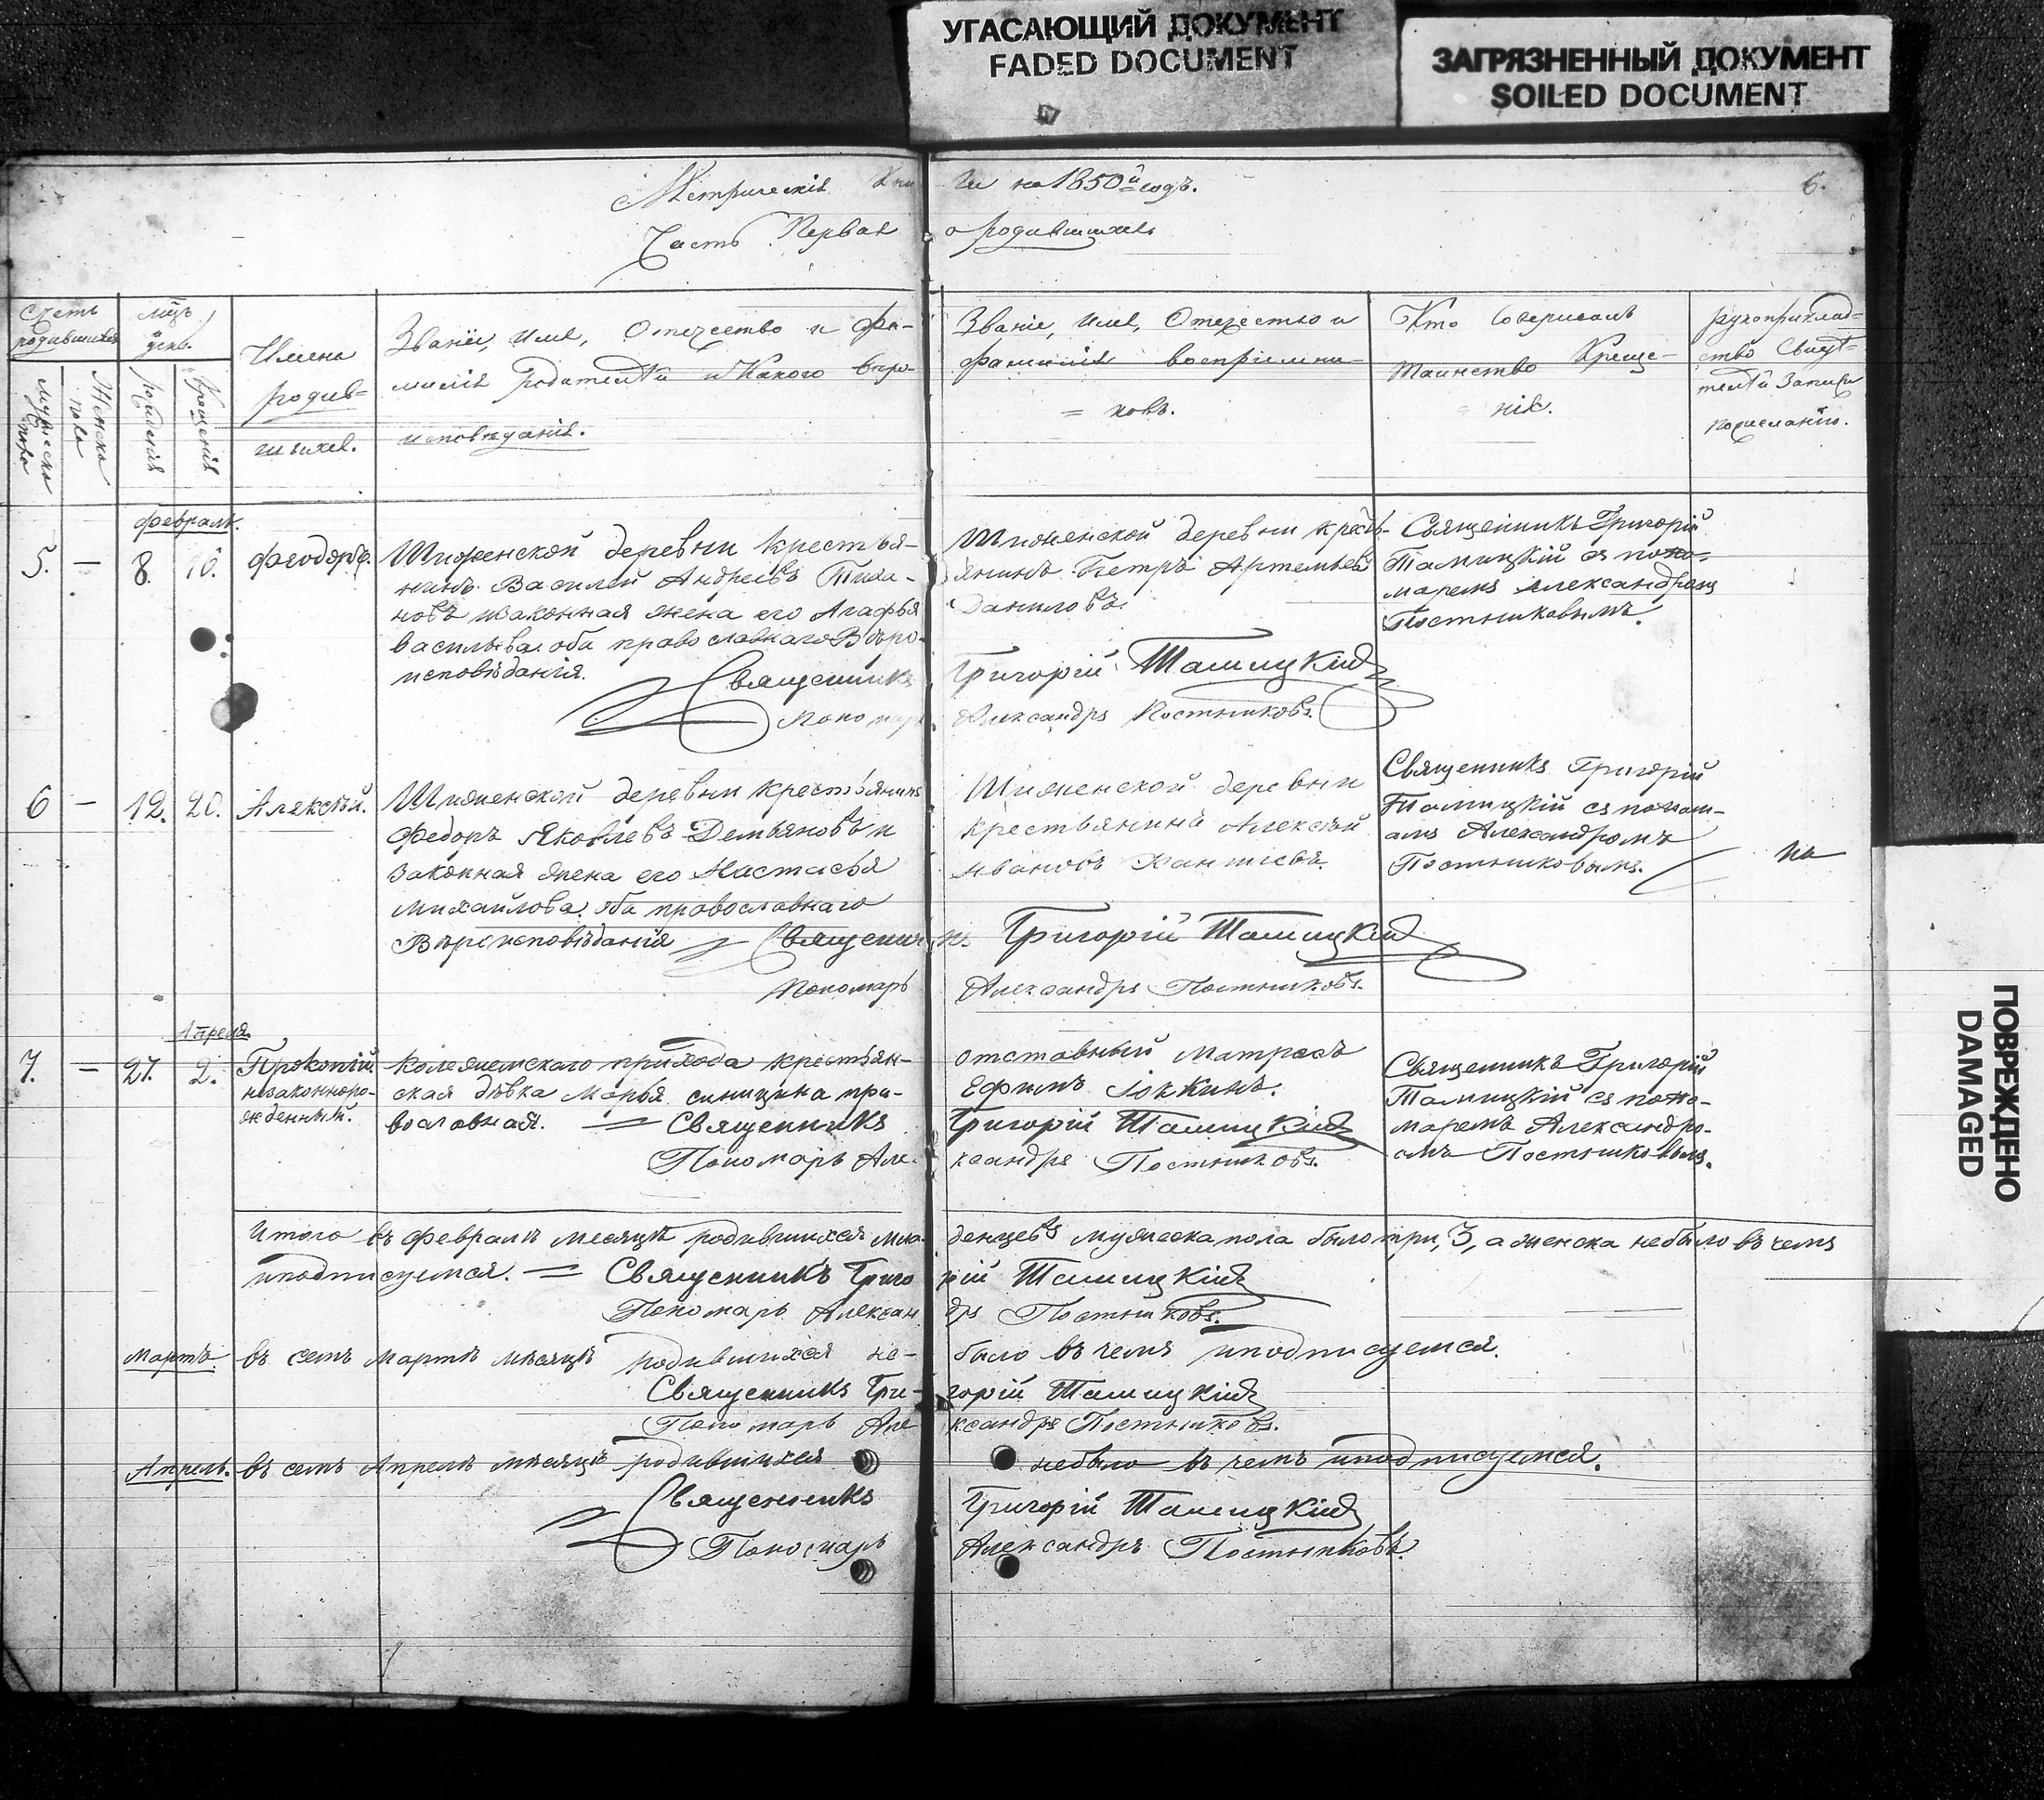 УГАСАЮЩИЙ ДОКУМЕНТ
FADED DOCUMENT
ЗАГРЯЗНЕННЫЙ ДОКУМЕНТ
SOILED DOCUMENT
ПОВРЕЖДЕНО
DAMAGED
Метрическія Кни
Часть Первая
ги на 1850й годъ.
о родившихся
6.
Счетъ
родившихся
Мужеска
пола
Женска
пола
мцъ
день.
рожденія
Крещенія
Имена
родив=
шихся.
Званіе, имя, Отечество и фа-
милія родителей и Какого веро-
исповѣданія.
Званіе, имя, Отечество и
фамилія воспріемни-
= ковъ.
Кто Совершалъ
Таинство Креще-
нія.
рукоприклад=
ство свидѣ-
телей записи
по желанію.
февраль.
5. — 8. 10. Феодоръ.
Шиженской деревни крестья-
нинъ Василей Андреевъ Тиха-
новъ изаконная жена его Агафья
васильева. оба православнаго Вѣро-
исповѣданія.
Священникъ
Пономарь
Шиженской деревни кресть-
янинъ Петръ Артемьевъ
Даниловъ.
Григорій
Александръ Постниковъ.
Священникъ Григорій
съ поно-
маремъ Александромъ
Постниковымъ.
6 — 12. 20. Алексѣй.
Шиженской деревни крестьянинъ
Федоръ Яковлевъ Демьяновъ и
законная жена его Настасья
Михайлова. оба православнаго
Вѣроисповѣданія Священни
Пономарь
Шиженской деревни
крестьянинъ Алексѣй
Ивановъ
къ Григорій
Александръ Постниковъ.
Священникъ Григорій
Александромъ
Постниковымъ.
Апреля.
7. — 27. 2. Прокопій.
незаконноро-
жденный.
Колежемскаго прихода крестьян-
ская дѣвка Марья синицина пра-
вославная. = Священникъ
Пономарь Але-
отставный матросъ
Ефимъ
Григорій
ксандръ Постниковъ.
Священникъ Григорій
съ поно-
маремъ Александро-
омъ Постниковымъ.
Итого въ февралѣ месяцѣ родившихся мла-
денцевъ мужеска пола было три, 3, а женска небыло въ чемъ
иподписуемся. = Священникъ Григо
рій
Пономарь Алексан
дръ Постниковъ.
Мартъ. въ семъ мартѣ мѣсяцѣ родившихся не-
было въ чемъ иподписуемся.
Священникъ Гри-
горій
Пономарь Але
ксандръ Постниковъ.
Апрель. въ семъ Апрелѣ мѣсяцѣ родившихся
небыло въ чемъ иподписуемся.
Священникъ
Григорій
Пономарь
Александръ Постниковъ.